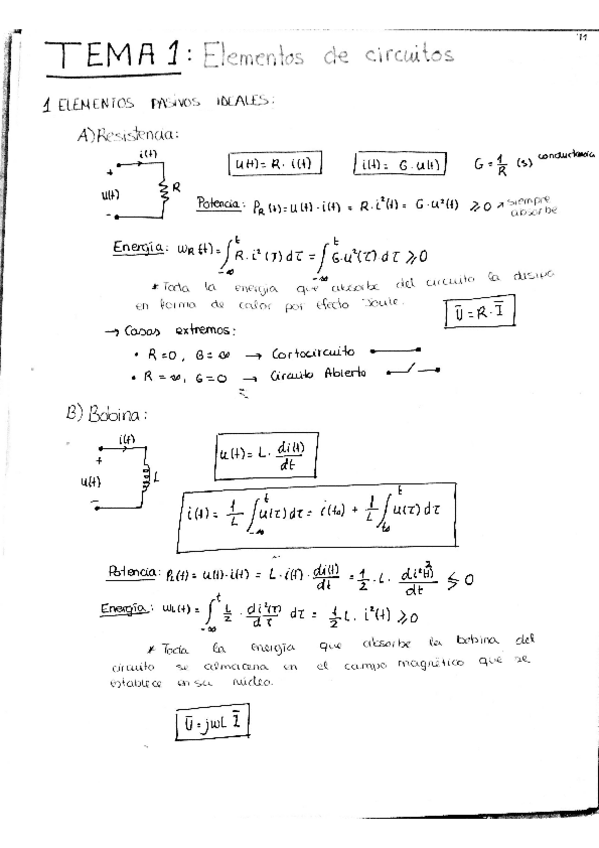 11
TEMA 1: Elementos de circuitos
1 ELEMENTOS PASIVOS IDEALES:
A) Resistencia:
i(t)
+
u(t)
R
-
u(t) = R · i(t)
i(t) = G · u(t)
G = 1/R (s) conductancia
Potencia: P_R(t) = u(t) · i(t) = R · i²(t) = G · u²(t) ≥ 0 ↗ siempre absorbe
Energía: w_R(t) = ∫_{-∞}^{t} R · i²(τ) dτ = ∫_{-∞}^{t} G · u²(τ) dτ ≥ 0
* Toda la energía que absorbe del circuito la disipa
en forma de calor por efecto Joule.
Ū = R · Ī
→ Casos extremos:
• R = 0, G = ∞ → Cortocircuito
• R = ∞, G = 0 → Circuito Abierto
B) Bobina:
i(t)
+
u(t)
L
-
u(t) = L · di(t)/dt
i(t) = 1/L ∫_{-∞}^{t} u(τ) dτ = i(t₀) + 1/L ∫_{t₀}^{t} u(τ) dτ
Potencia: P_L(t) = u(t) · i(t) = L · i(t) · di(t)/dt = 1/2 · L · di²(t)/dt ≶ 0
Energía: w_L(t) = ∫_{-∞}^{t} L/2 · di²(τ)/dτ dτ = 1/2 L · i²(t) ≥ 0
* Toda la energía que absorbe la bobina del
circuito se almacena en el campo magnético que se
establece en su núcleo.
Ū = jωL Ī